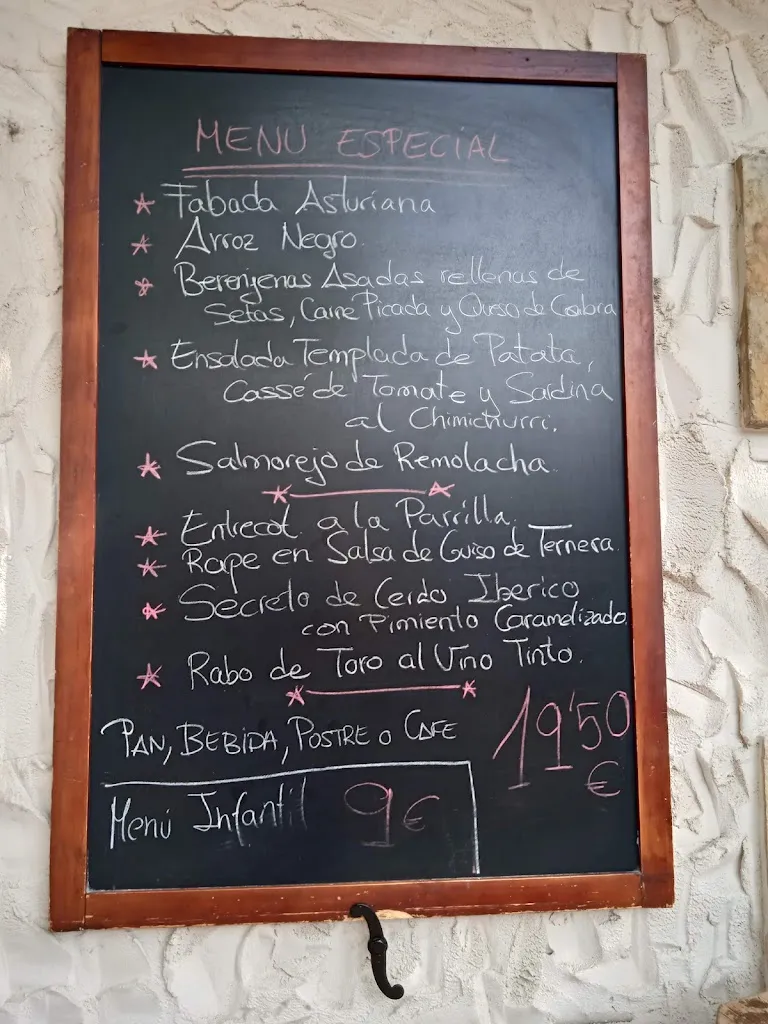 MENU ESPECIAL
* Fabada Asturiana
* Arroz Negro.
* Berenjenas Asadas rellenas de
Setas, Carne Picada y Queso de Cabra
* Ensalada Templada de Patata,
Cassé de Tomate y Sardina
al Chimichurri.
* Salmorejo de Remolacha.
* Entrecot a la Parrilla.
* Rape en Salsa de Guiso de Ternera.
* Secreto de Cerdo Iberico
con Pimiento Caramelizado.
* Rabo de Toro al Vino Tinto.
PAN, BEBIDA, POSTRE O CAFE
19'50
€
Menú Infantil 9€